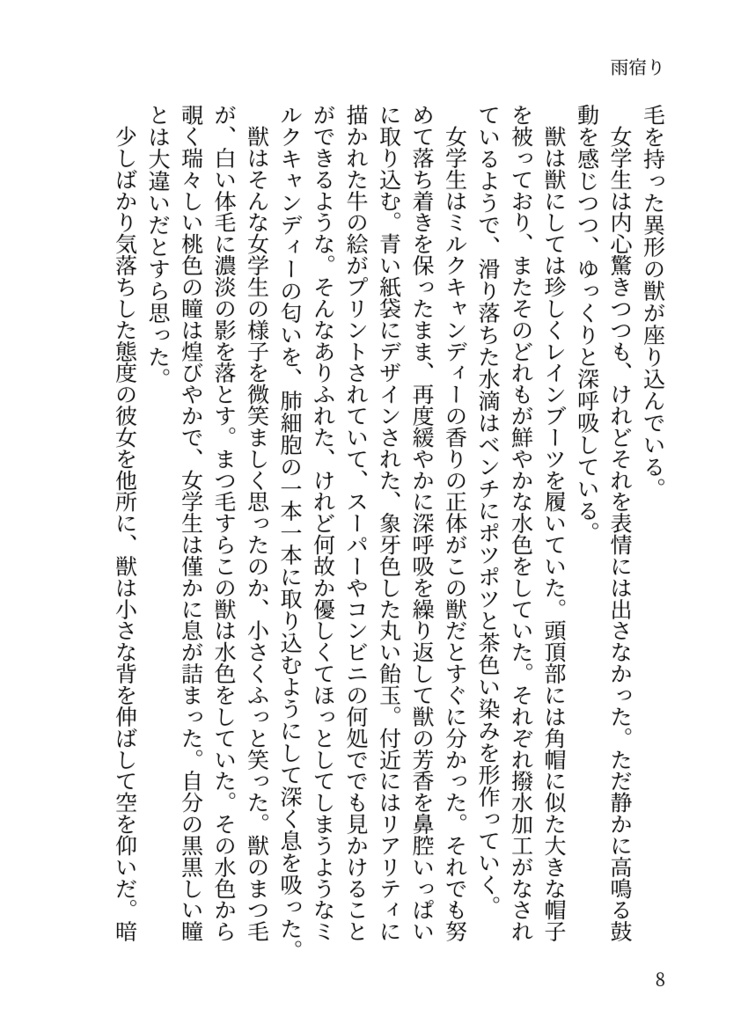 雨宿り
毛を持った異形の獣が座り込んでいる。
女学生は内心驚きつつも、けれどそれを表情には出さなかった。ただ静かに高鳴る鼓
動を感じつつ、ゆっくりと深呼吸している。
獣は獣にしては珍しくレインブーツを履いていた。頭頂部には角帽に似た大きな帽子
を被っており、またそのどれもが鮮やかな水色をしていた。それぞれ撥水加工がなされ
ているようで、滑り落ちた水滴はベンチにポツポツと茶色い染みを形作っていく。
女学生はミルクキャンディーの香りの正体がこの獣だとすぐに分かった。それでも努
めて落ち着きを保ったまま、再度緩やかに深呼吸を繰り返して獣の芳香を鼻腔いっぱい
に取り込む。青い紙袋にデザインされた、象牙色した丸い飴玉。付近にはリアリティに
描かれた牛の絵がプリントされていて、スーパーやコンビニの何処ででも見かけること
ができるような。そんなありふれた、けれど何故か優しくてほっとしてしまうようなミ
ルクキャンディーの匂いを、肺細胞の一本一本に取り込むようにして深く息を吸った。
獣はそんな女学生の様子を微笑ましく思ったのか、小さくふっと笑った。獣のまつ毛
が、白い体毛に濃淡の影を落とす。まつ毛すらこの獣は水色をしていた。その水色から
覗く瑞々しい桃色の瞳は煌びやかで、女学生は僅かに息が詰まった。自分の黒黒しい瞳
とは大違いだとすら思った。
少しばかり気落ちした態度の彼女を他所に、獣は小さな背を伸ばして空を仰いだ。暗
8